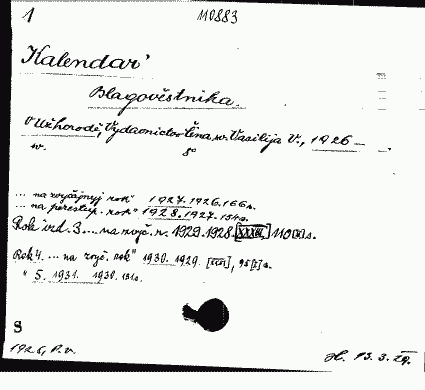 1
110883
Kalendar'
Blagověstnika.
V Užhorodě, Vydavnictvo Čina sv. Vasilija V., 1926 – .
8°
... na zvyčajnyj rok" 1927. 1926. 166 s.
... na perestup. rok" 1928. 1927. 154 s.
Rok izd. 3. ... na zvyč. r. 1929. 1928. [XXXII,] 110 s.
Rok 4. ... na zvyč. rok" 1930. 1929. 95 s.
" 5. 1931. 1930. 151 s.
S
1926, P. v.
H. 13. 3. 29.